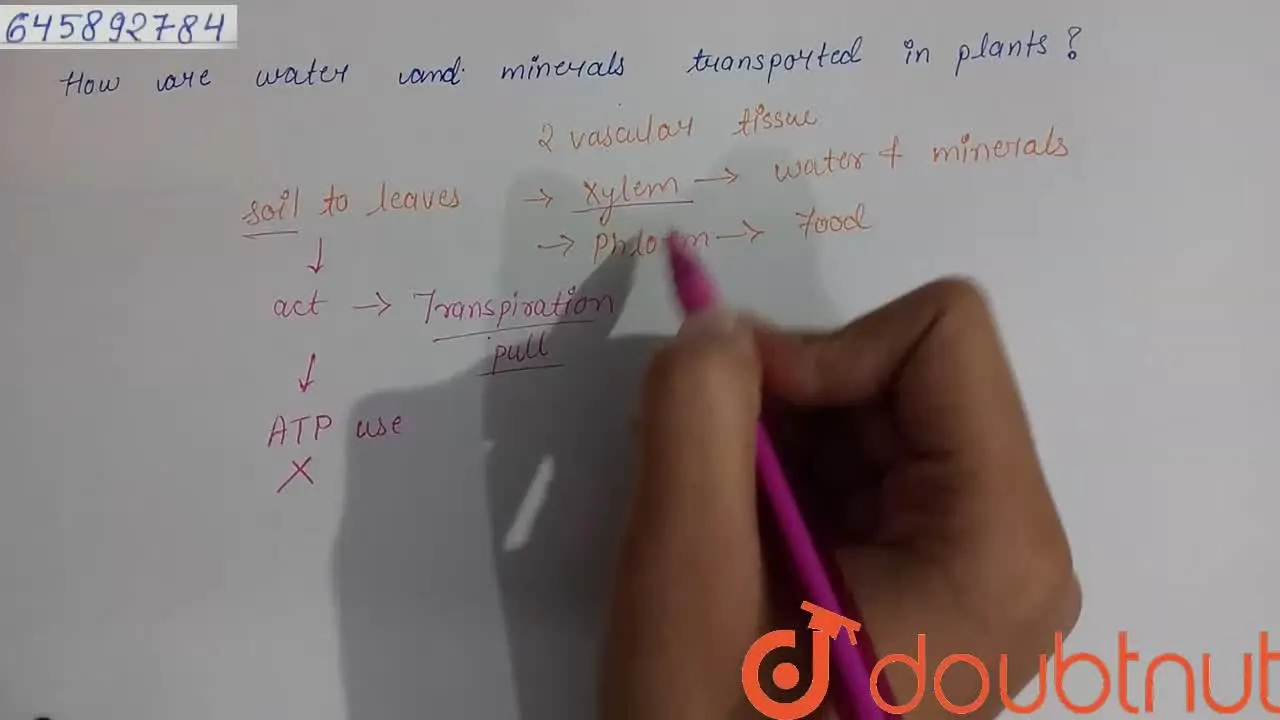 645892784
How are water and minerals transported in plants?
2 vascular tissue
soil to leaves → xylem → water + minerals
→ Phloem → Food
↓
act → Transpiration
pull
↓
ATP use
X
doubtnut